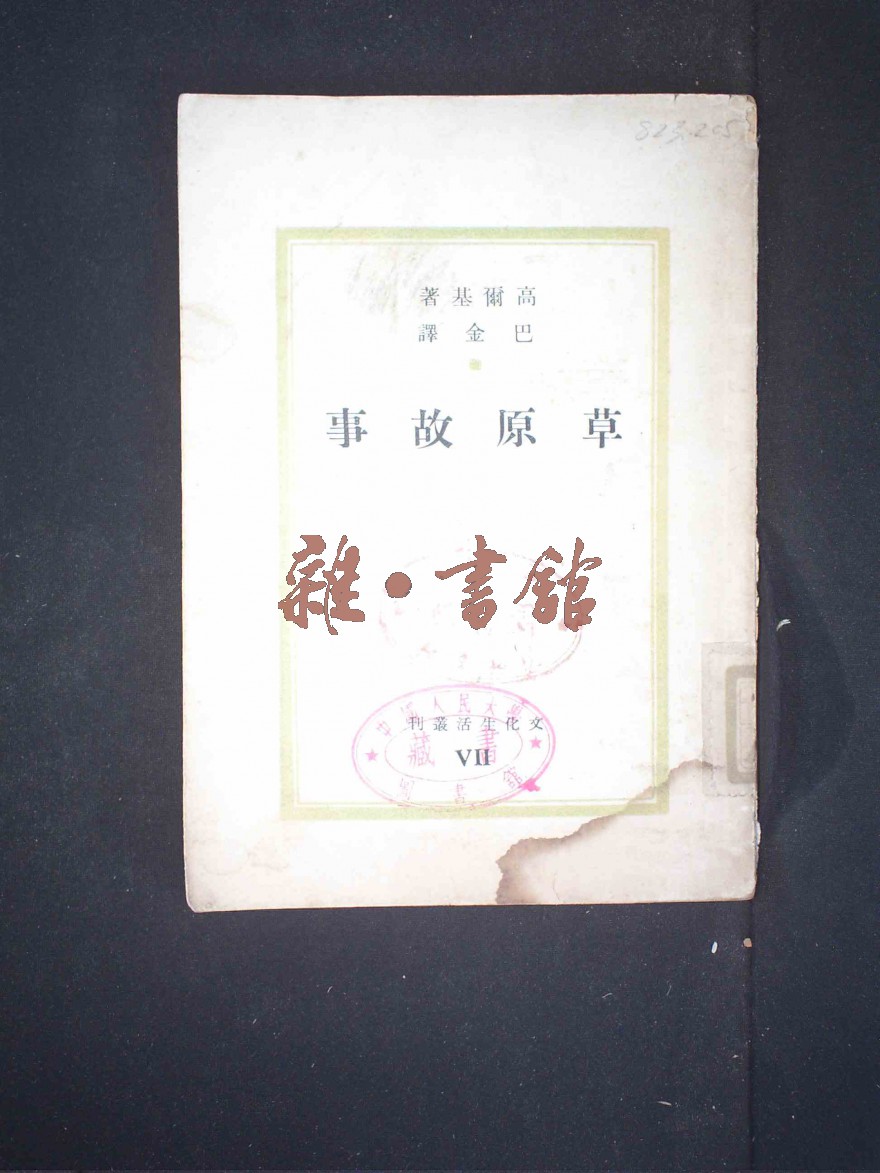 823.205
高爾基著
巴金譯
草原故事
雜·書館
文化生活叢刊
VII
中國人民大學
藏書
圖書館